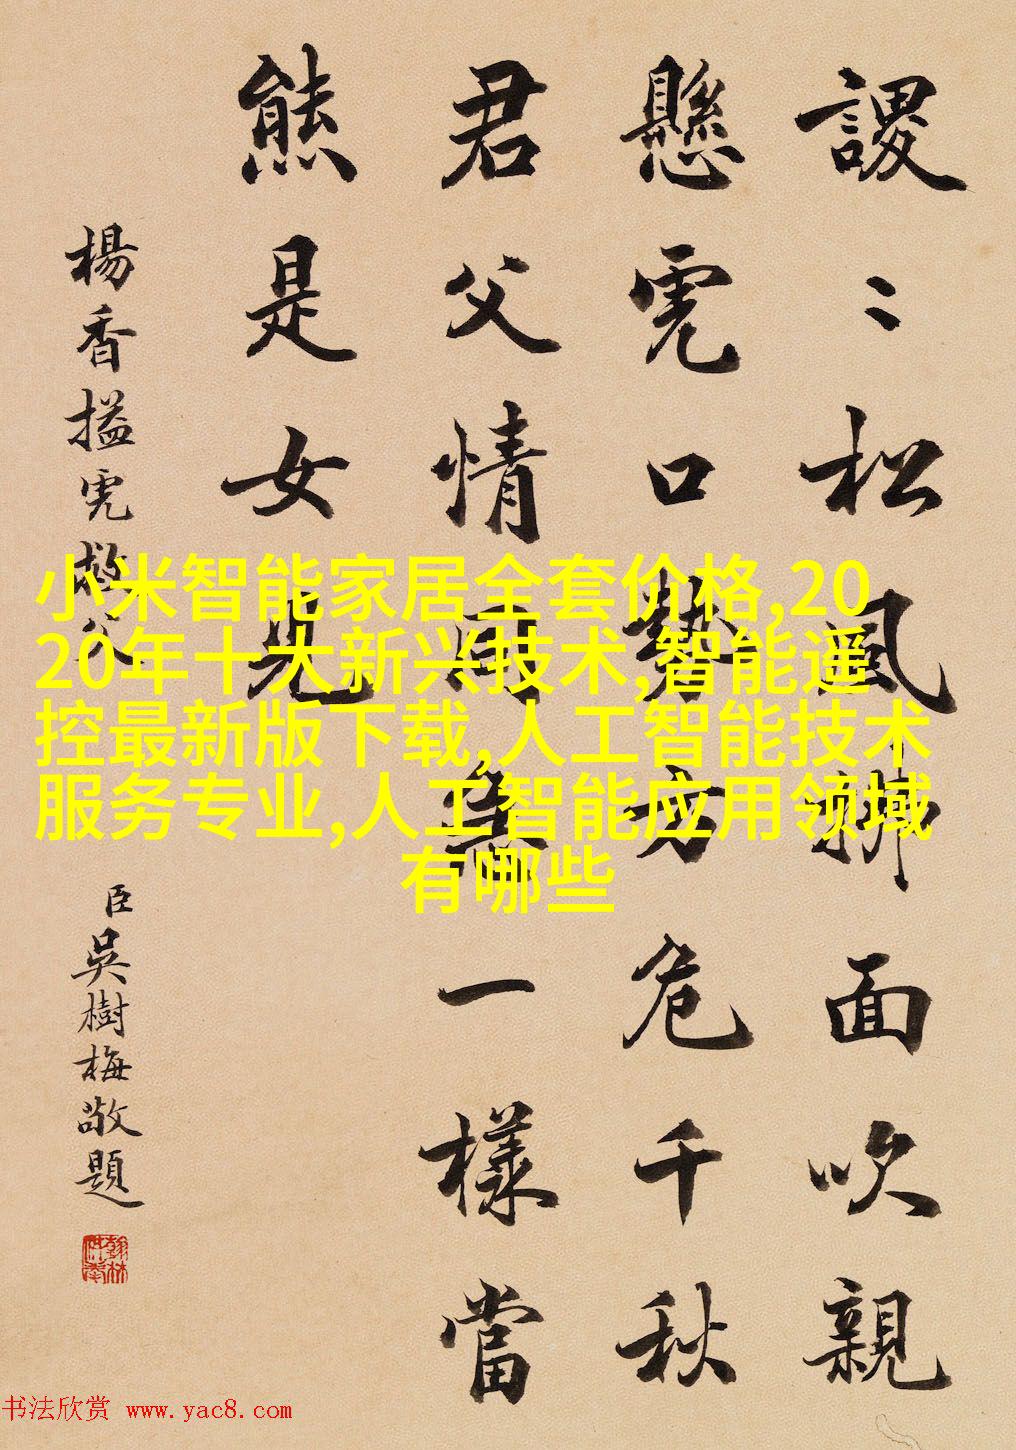 謖〻松風拂面吹親
懸虎口勢方危千秋
君父情同急一樣當
熊是女兒
楊香搤虎救父
臣吳樹梅敬題
翰林供奉
小米智能家居全套价格,20
20年十大新兴技术,智能遥
控最新版下载,人工智能技术
服务专业,人工智能应用领域
有哪些
书法欣赏 www.yac8.com